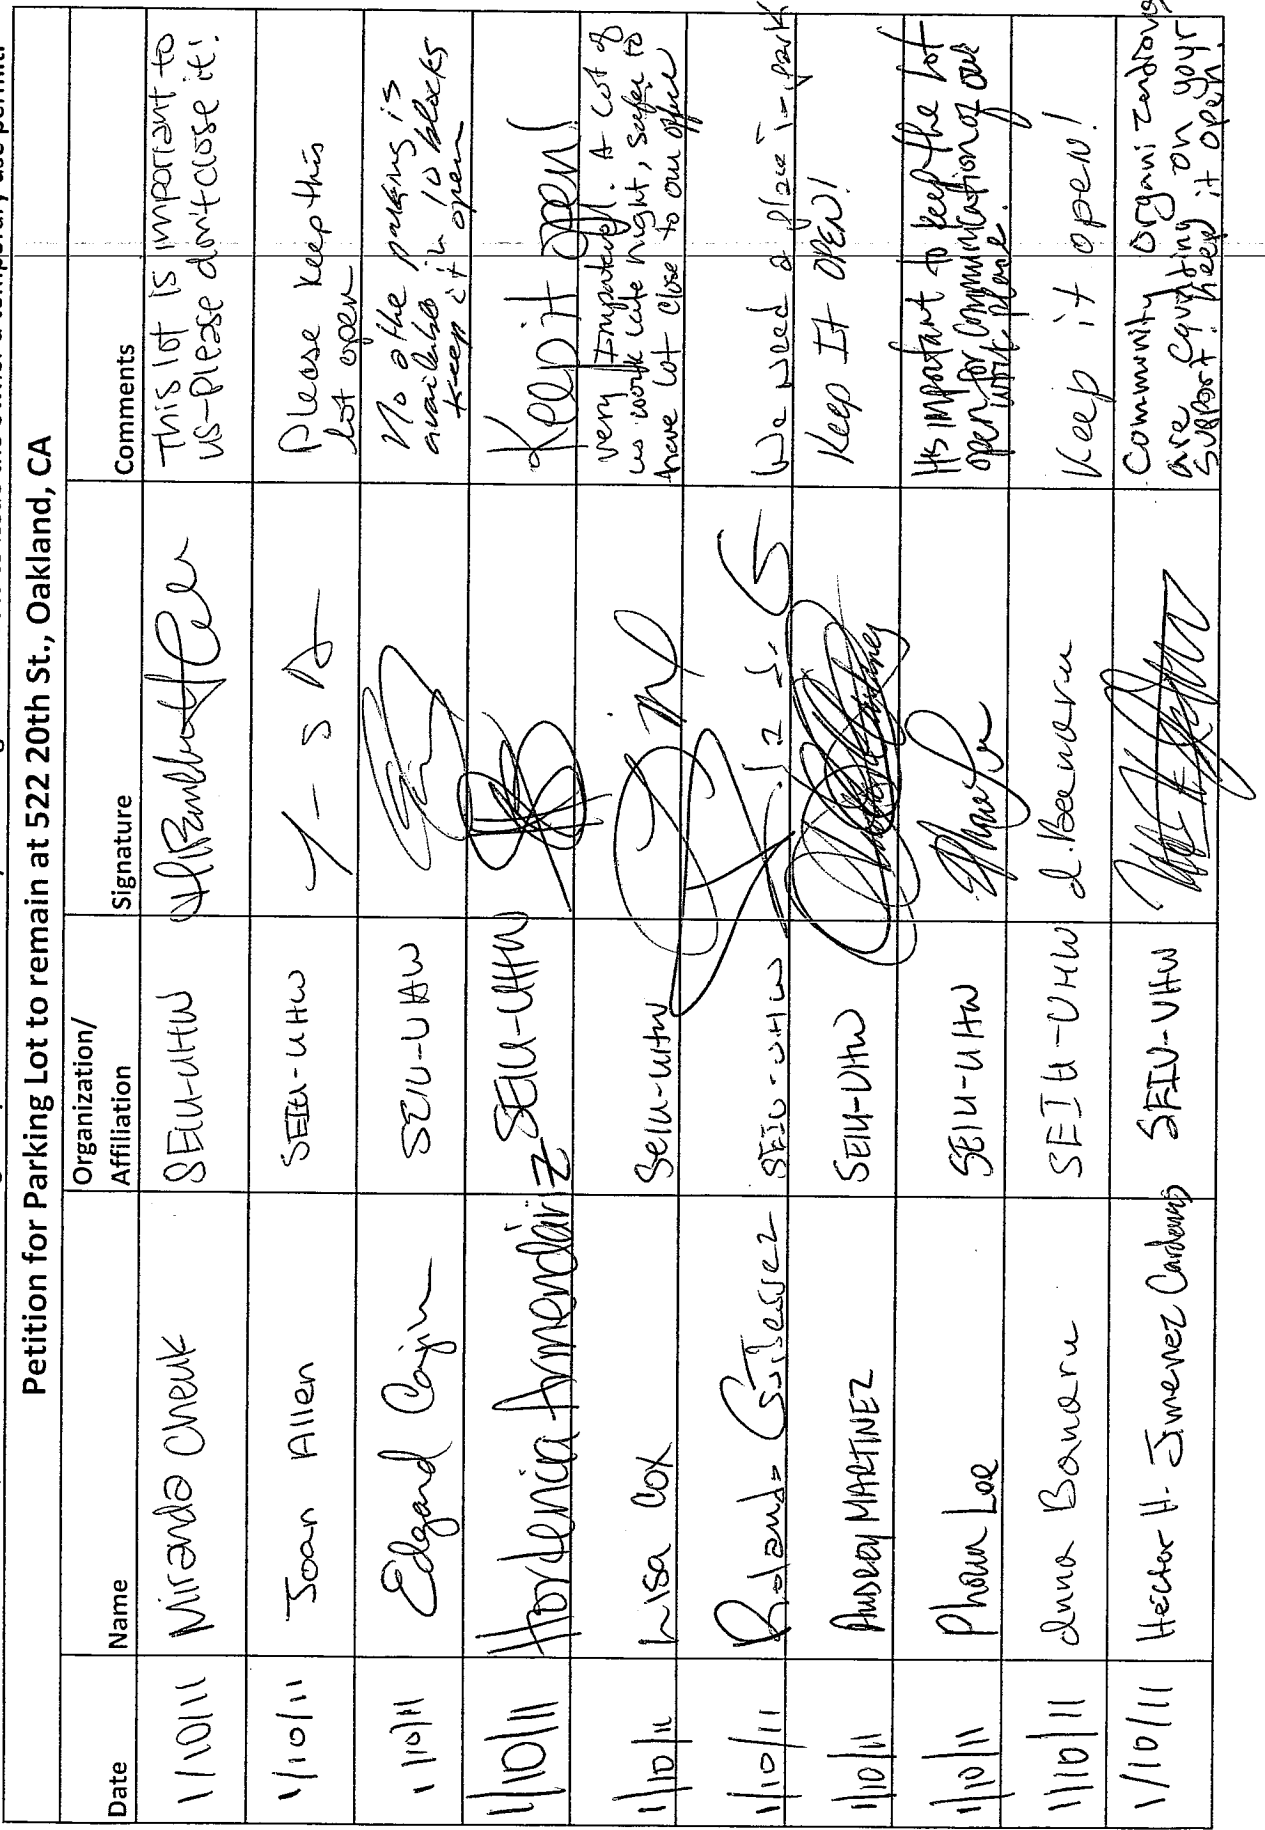 temporary use permit.
Petition for Parking Lot to remain at 522 20th St., Oakland, CA
Date Name Organization/ Affiliation Signature Comments
1/10/11 Miranda Cheuk SEIU-UHW This lot is important to
us-please don't close it!
1/10/11 Joan Allen SEIU-UHW Please keep this
lot open
1/10/11 Edgard Cajina SEIU-UHW No othe parking is
available
keep it open in 10 blocks
1/10/11 Hortencia Armendariz SEIU-UHW Keep it open!
1/10/11 Lisa Cox Seiu-uhw very Important. A lot of
us work late night, safer to
have lot close to our office
1/10/11 Rolando Gutierrez SEIU-UHW We need a place to park
1/10/11 AUDREY MARTINEZ SEIU-UHW Keep It OPEN!
1/10/11 Phoua Loe SEIU-UHW It's important to keep the lot
open for communication of our
work place.
1/10/11 Anna Banaru SEIU-UHW d. Banaru Keep it open!
1/10/11 Hector H. Jimenez Cardenas SEIU-UHW Community Organizations
are counting on your
support! keep it open!